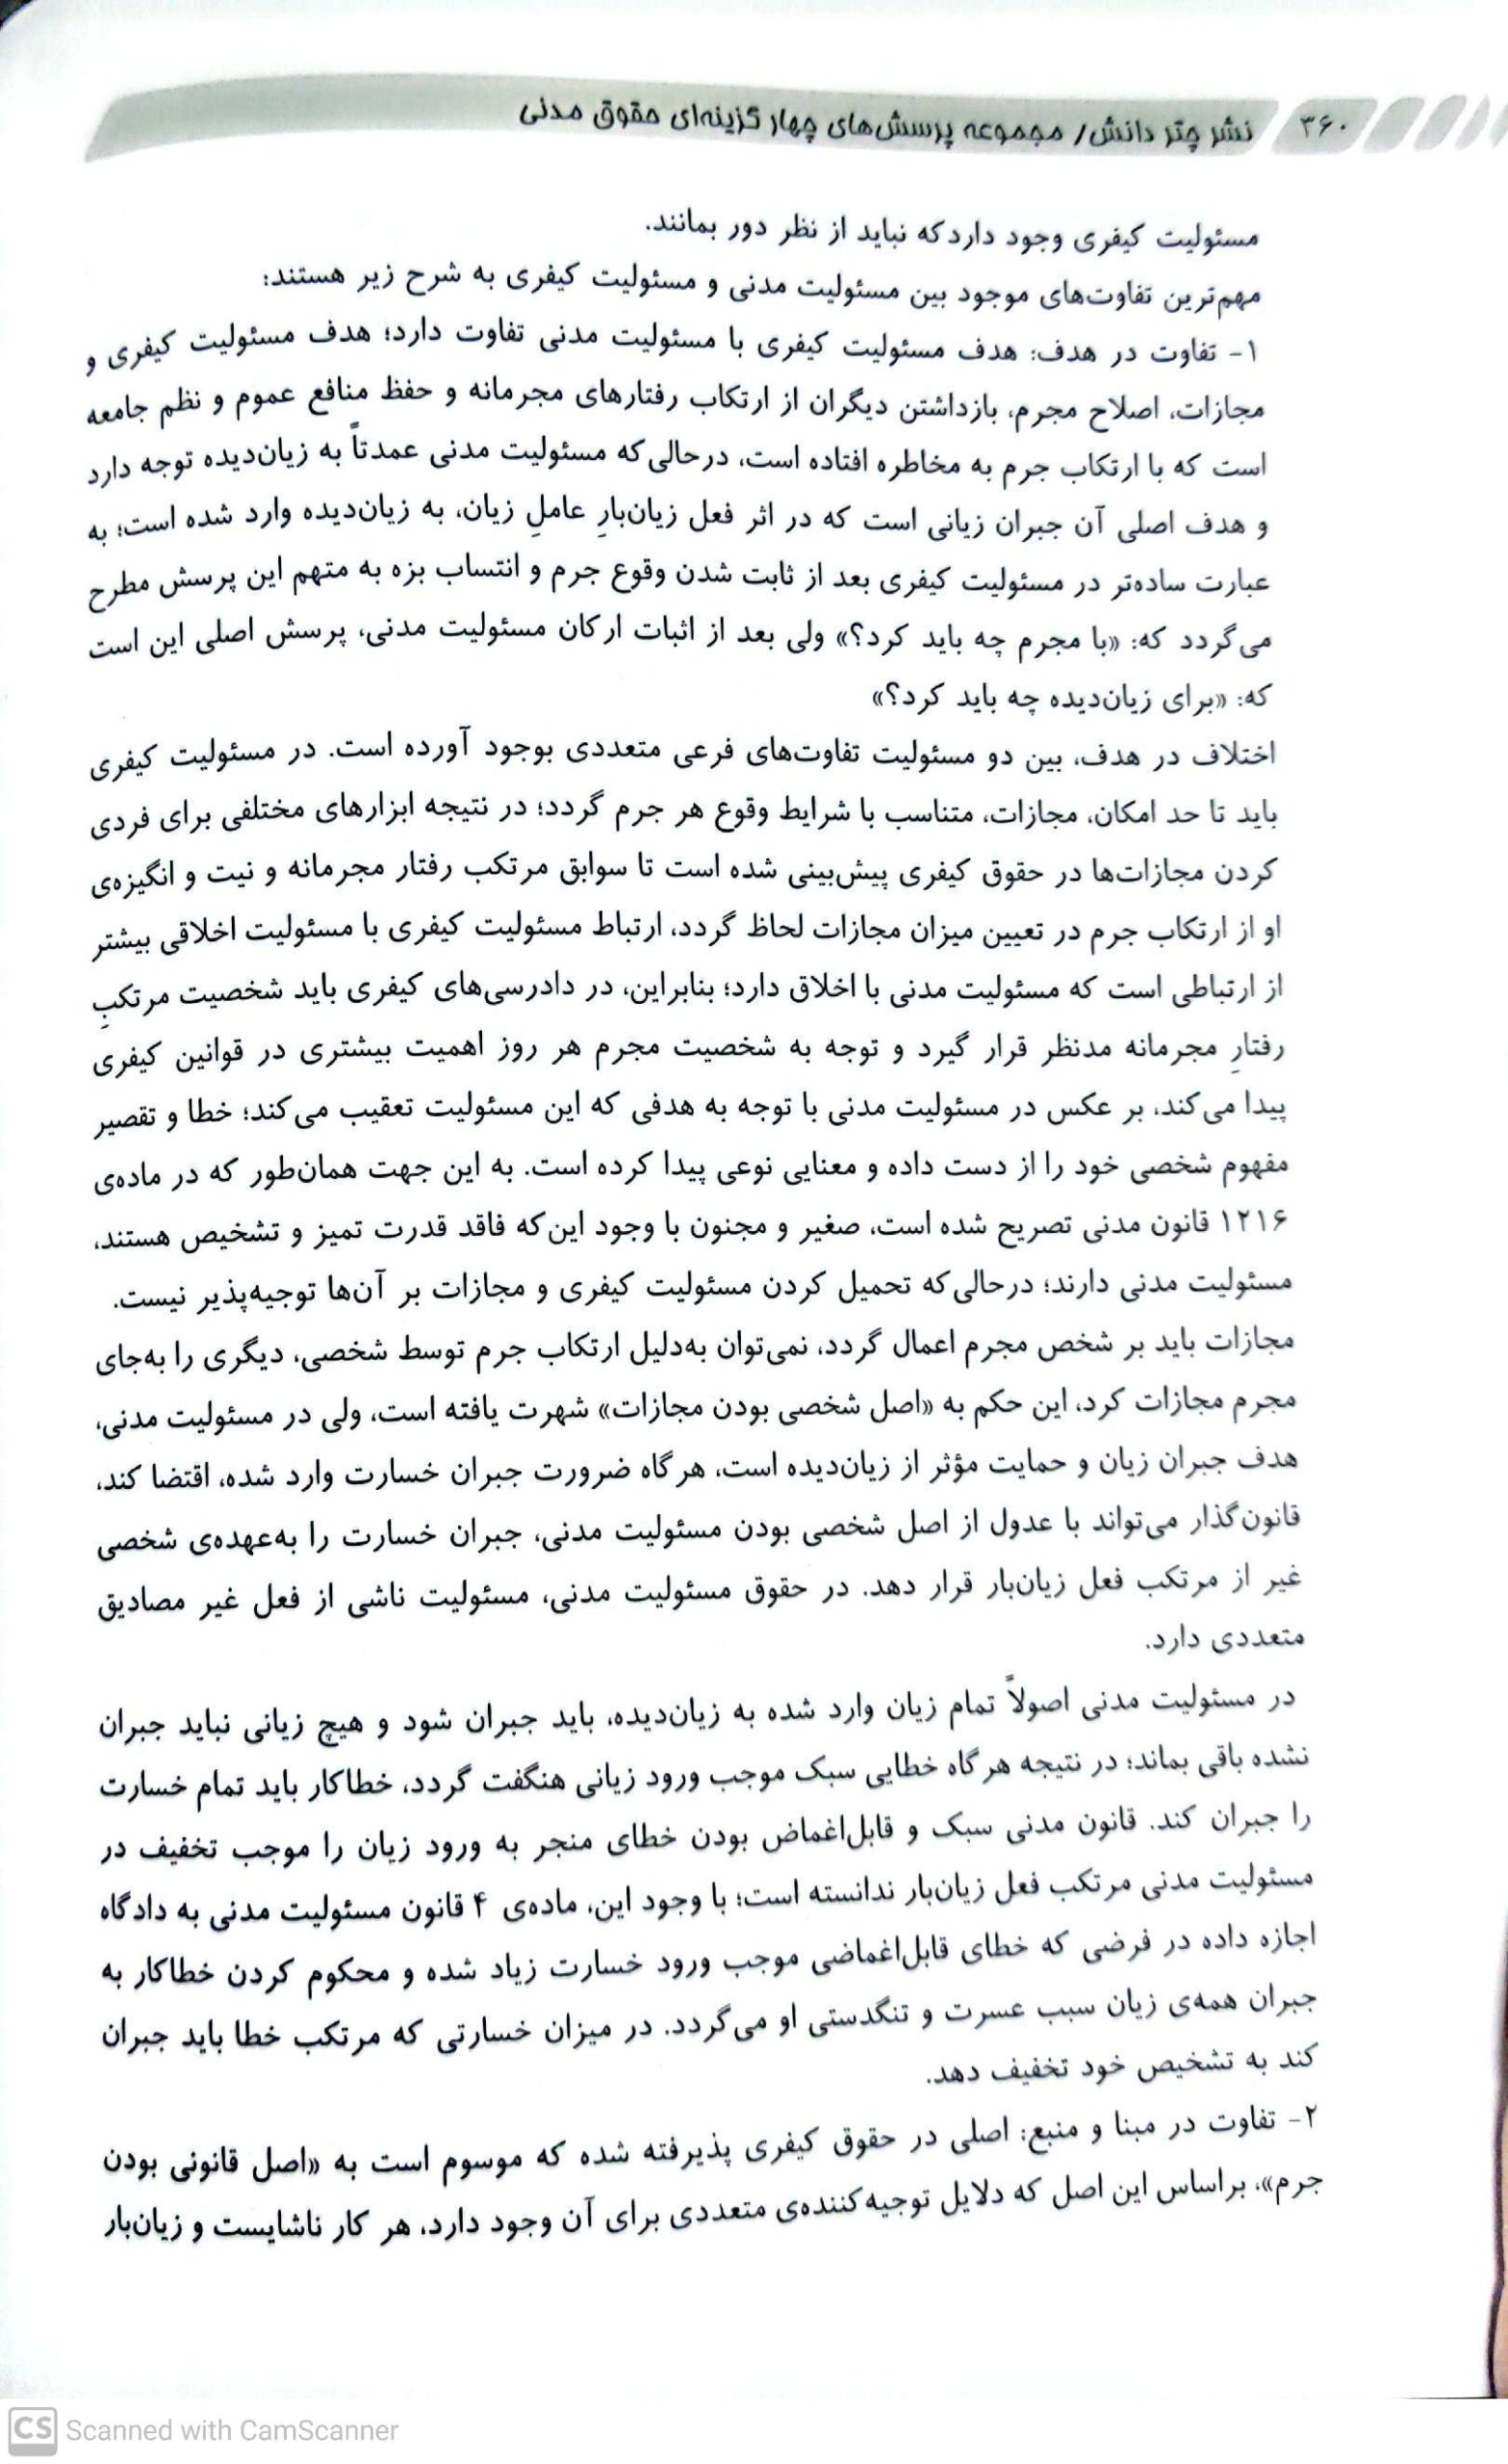 ۳۶۰ نشر چتر دانش/ مجموعه پرسش‌های چهار گزینه‌ای حقوق مدنی
مسئولیت کیفری وجود دارد که نباید از نظر دور بمانند.
مهم‌ترین تفاوت‌های موجود بین مسئولیت مدنی و مسئولیت کیفری به شرح زیر هستند:
۱- تفاوت در هدف: هدف مسئولیت کیفری با مسئولیت مدنی تفاوت دارد؛ هدف مسئولیت کیفری و
مجازات، اصلاح مجرم، بازداشتن دیگران از ارتکاب رفتارهای مجرمانه و حفظ منافع عموم و نظم جامعه
است که با ارتکاب جرم به مخاطره افتاده است، درحالی‌که مسئولیت مدنی عمدتاً به زیان‌دیده توجه دارد
و هدف اصلی آن جبران زیانی است که در اثر فعل زیان‌بارِ عاملِ زیان، به زیان‌دیده وارد شده است؛ به
عبارت ساده‌تر در مسئولیت کیفری بعد از ثابت شدن وقوع جرم و انتساب بزه به متهم این پرسش مطرح
می‌گردد که: «با مجرم چه باید کرد؟» ولی بعد از اثبات ارکان مسئولیت مدنی، پرسش اصلی این است
که: «برای زیان‌دیده چه باید کرد؟»
اختلاف در هدف، بین دو مسئولیت تفاوت‌های فرعی متعددی بوجود آورده است. در مسئولیت کیفری
باید تا حد امکان، مجازات، متناسب با شرایط وقوع هر جرم گردد؛ در نتیجه ابزارهای مختلفی برای فردی
کردن مجازات‌ها در حقوق کیفری پیش‌بینی شده است تا سوابق مرتکب رفتار مجرمانه و نیت و انگیزه‌ی
او از ارتکاب جرم در تعیین میزان مجازات لحاظ گردد، ارتباط مسئولیت کیفری با مسئولیت اخلاقی بیشتر
از ارتباطی است که مسئولیت مدنی با اخلاق دارد؛ بنابراین، در دادرسی‌های کیفری باید شخصیت مرتکبِ
رفتارِ مجرمانه مدنظر قرار گیرد و توجه به شخصیت مجرم هر روز اهمیت بیشتری در قوانین کیفری
پیدا می‌کند، بر عکس در مسئولیت مدنی با توجه به هدفی که این مسئولیت تعقیب می‌کند؛ خطا و تقصیر
مفهوم شخصی خود را از دست داده و معنایی نوعی پیدا کرده است. به این جهت همان‌طور که در ماده‌ی
۱۲۱۶ قانون مدنی تصریح شده است، صغیر و مجنون با وجود این‌که فاقد قدرت تمیز و تشخیص هستند،
مسئولیت مدنی دارند؛ درحالی‌که تحمیل کردن مسئولیت کیفری و مجازات بر آن‌ها توجیه‌پذیر نیست.
مجازات باید بر شخص مجرم اعمال گردد، نمی‌توان به‌دلیل ارتکاب جرم توسط شخصی، دیگری را به‌جای
مجرم مجازات کرد، این حکم به «اصل شخصی بودن مجازات» شهرت یافته است، ولی در مسئولیت مدنی،
هدف جبران زیان و حمایت مؤثر از زیان‌دیده است، هرگاه ضرورت جبران خسارت وارد شده، اقتضا کند،
قانون‌گذار می‌تواند با عدول از اصل شخصی بودن مسئولیت مدنی، جبران خسارت را به‌عهده‌ی شخصی
غیر از مرتکب فعل زیان‌بار قرار دهد. در حقوق مسئولیت مدنی، مسئولیت ناشی از فعل غیر مصادیق
متعددی دارد.
در مسئولیت مدنی اصولاً تمام زیان وارد شده به زیان‌دیده، باید جبران شود و هیچ زیانی نباید جبران
نشده باقی بماند؛ در نتیجه هرگاه خطایی سبک موجب ورود زیانی هنگفت گردد، خطاکار باید تمام خسارت
را جبران کند. قانون مدنی سبک و قابل‌اغماض بودن خطای منجر به ورود زیان را موجب تخفیف در
مسئولیت مدنی مرتکب فعل زیان‌بار ندانسته است؛ با وجود این، ماده‌ی ۴ قانون مسئولیت مدنی به دادگاه
اجازه داده در فرضی که خطای قابل‌اغماضی موجب ورود خسارت زیاد شده و محکوم کردن خطاکار به
جبران همه‌ی زیان سبب عسرت و تنگدستی او می‌گردد. در میزان خسارتی که مرتکب خطا باید جبران
کند به تشخیص خود تخفیف دهد.
۲- تفاوت در مبنا و منبع: اصلی در حقوق کیفری پذیرفته شده که موسوم است به «اصل قانونی بودن
جرم»، براساس این اصل که دلایل توجیه‌کننده‌ی متعددی برای آن وجود دارد، هر کار ناشایست و زیان‌بار
CS Scanned with CamScanner